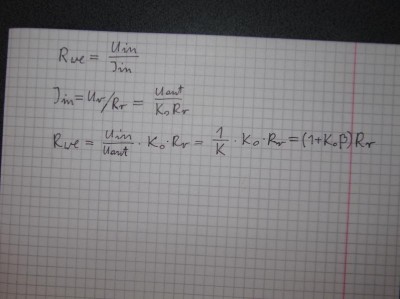 Rwe = Uin / Jin
Jin = Ur/Rr = Uout / K₀Rr
Rwe = Uin / Uout · K₀·Rr = 1 / K · K₀·Rr = (1+K₀β)Rr